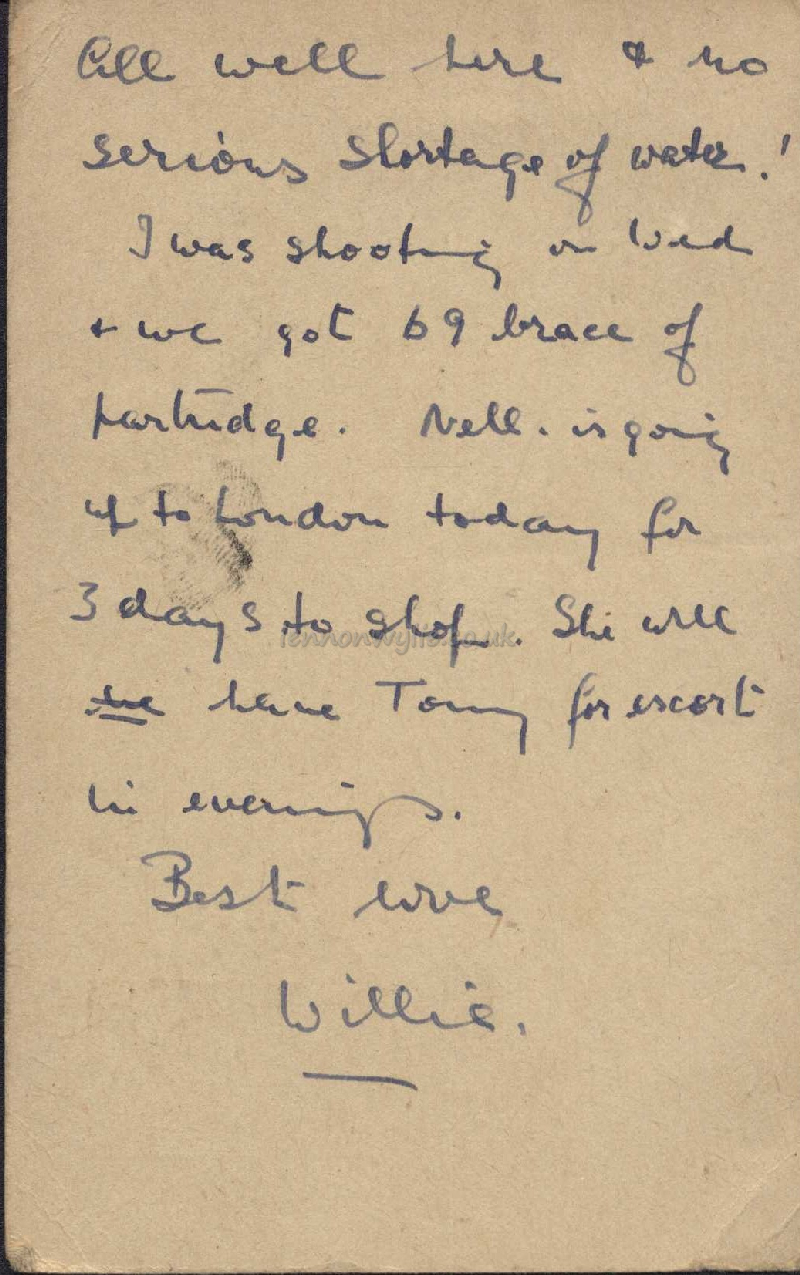 All well here & no
serious shortage of water.!
I was shooting on Wed
& we got 69 brace of
partridge. Nell. is going
up to London today for
3 days to shop. She will
have Tony for escort
in evenings.
Best love
Willie.
lennonwylie.co.uk